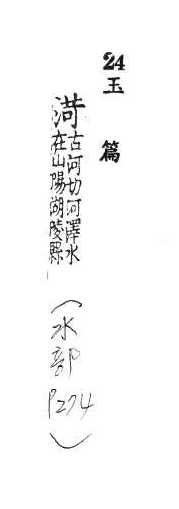 24玉篇
渮古河切河澤水
在山陽湖陵縣
(水部P274)